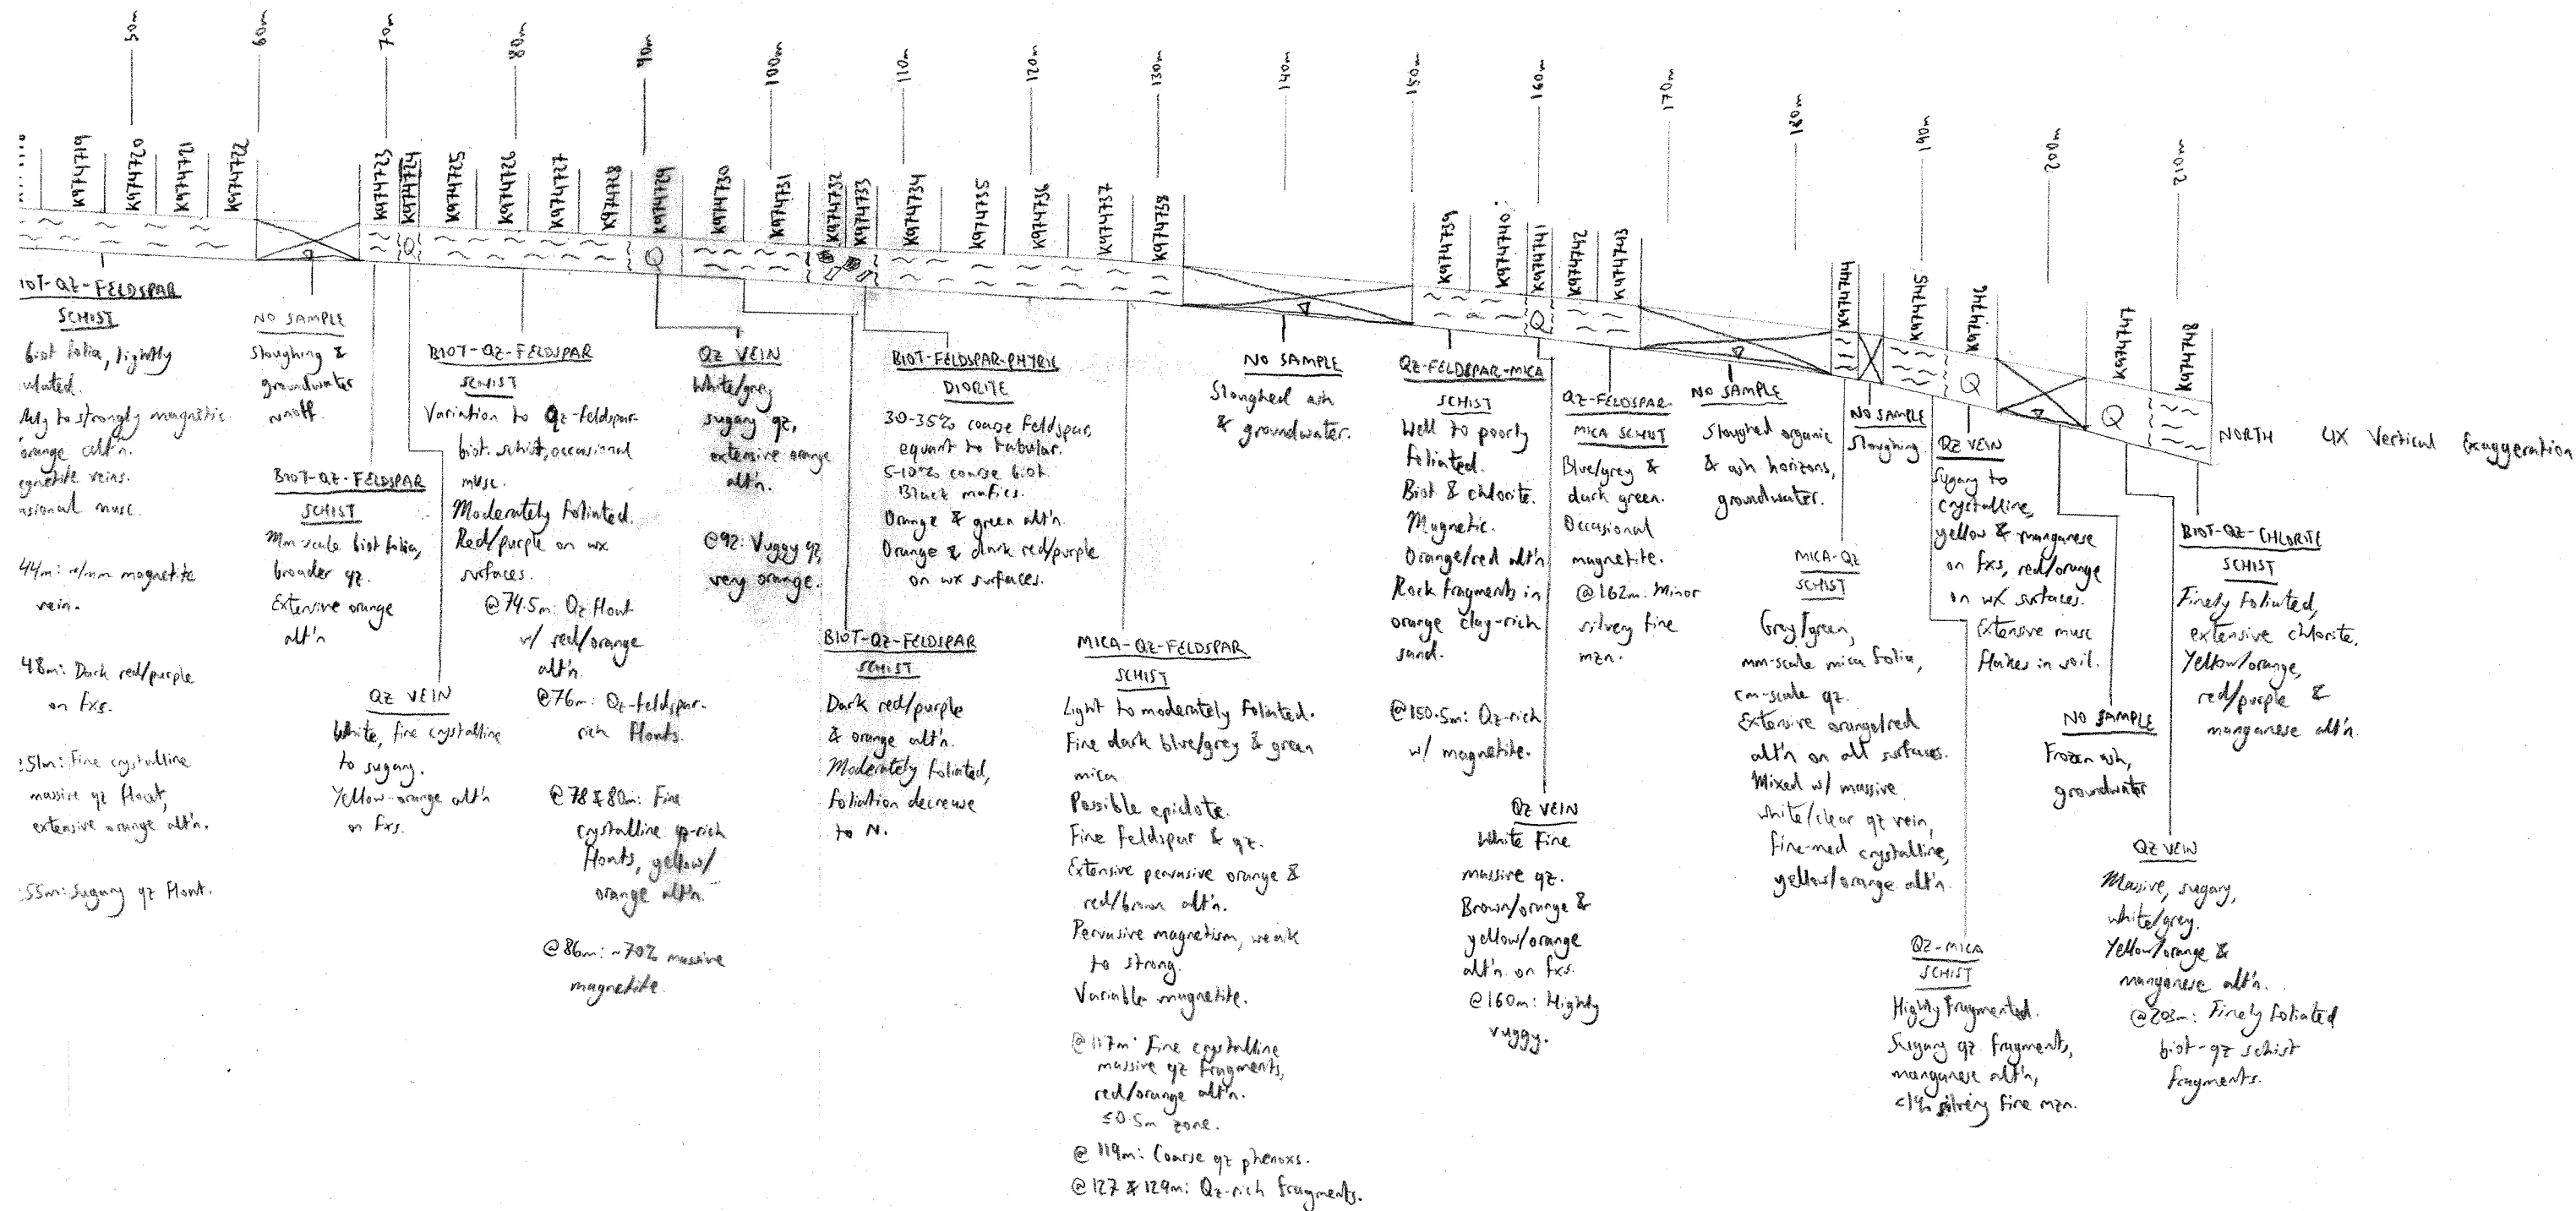 50m
60m
70m
80m
90m
100m
110m
120m
130m
140m
150m
160m
170m
180m
190m
200m
210m
K974719
K974720
K974721
K974722
K974723
K974724
K974725
K974726
K974727
K974728
K974729
K974730
K974731
K974732
K974733
K974734
K974735
K974736
K974737
K974738
K974739
K974740
K974741
K974742
K974743
K974744
K974745
K974746
K974747
K974748
Q
Q
Q
Q
Q
NORTH 4X Vertical Exaggeration
IOT-QZ-FELDSPAR
SCHIST
biot folia, lightly
magnetic
orange alt'n.
veins.
musc.
44m: magnetite
vein.
48m: Dark red/purple
on fxs.
51m: Fine crystalline
massive qz float,
extensive orange alt'n.
55m: Sugary qz float.
NO SAMPLE
Sloughing &
groundwater
runoff
BIOT-QZ-FELDSPAR
SCHIST
Mm-scale biot folia,
broader qz.
Extensive orange
alt'n
QZ VEIN
White, fine crystalline
to sugary.
Yellow-orange alt'n
on fxs.
BIOT-QZ-FELDSPAR
SCHIST
Variation to Qz-feldspar-
biot. schist, occasional
musc.
Moderately foliated.
Red/purple on wx
surfaces.
@74.5m: Qz float
w/ red/orange
alt'n.
@76m: Qz-feldspar-
rich floats.
@78 & 80m: Fine
crystalline qz-rich
floats, yellow/
orange alt'n.
@86m: ~70% massive
magnetite.
QZ VEIN
White/grey
sugary qz,
extensive orange
alt'n.
@92: Vuggy qz,
very orange.
BIOT-QZ-FELDSPAR
SCHIST
Dark red/purple
& orange alt'n.
Moderately foliated,
foliation decrease
to N.
BIOT-FELDSPAR-PHYRIC
DIORITE
30-35% coarse feldspar,
equant to tabular.
5-10% coarse biot.
Black mafics.
Orange & green alt'n.
Orange & dark red/purple
on wx surfaces.
MICA-QZ-FELDSPAR
SCHIST
Light to moderately foliated.
Fine dark blue/grey & green
mica
Possible epidote.
Fine feldspar & qz.
Extensive pervasive orange &
red/brown alt'n.
Pervasive magnetism, weak
to strong.
Variable magnetite.
@117m: Fine crystalline
massive qz fragments,
red/orange alt'n.
≤0.5m zone.
@119m: Coarse qz phenoxs.
@127 & 129m: Qz-rich fragments.
NO SAMPLE
Sloughed ash
& groundwater.
QZ-FELDSPAR-MICA
SCHIST
Well to poorly
foliated.
Biot & chlorite.
Magnetic.
Orange/red alt'n
Rock fragments in
orange clay-rich
sand.
@150.5m: Qz-rich
w/ magnetite.
QZ VEIN
White fine
massive qz.
Brown/orange &
yellow/orange
alt'n. on fxs.
@160m: Highly
vuggy.
QZ-FELDSPAR-
MICA SCHIST
Blue/grey &
dark green.
Occasional
magnetite.
@162m: Minor
silvery fine
mzn.
NO SAMPLE
Sloughed organic
& ash horizons,
groundwater.
MICA-QZ
SCHIST
Grey/green,
mm-scale mica folia,
cm-scale qz.
Extensive orange/red
alt'n on all surfaces.
Mixed w/ massive
white/clear qz vein,
fine-med crystalline,
yellow/orange alt'n.
NO SAMPLE
Sloughing
QZ-MICA
SCHIST
Highly fragmented.
Sugary qz fragments,
manganese alt'n,
<1% silvery fine mzn.
QZ VEIN
Sugary to
crystalline,
yellow & manganese
on fxs, red/orange
on wx surfaces.
Extensive musc
flakes in soil.
NO SAMPLE
Frozen ash,
groundwater
QZ VEIN
Massive, sugary,
white/grey.
Yellow/orange &
manganese alt'n.
@203m: Finely foliated
biot-qz schist
fragments.
BIOT-QZ-CHLORITE
SCHIST
Finely foliated,
extensive chlorite.
Yellow/orange,
red/purple &
manganese alt'n.